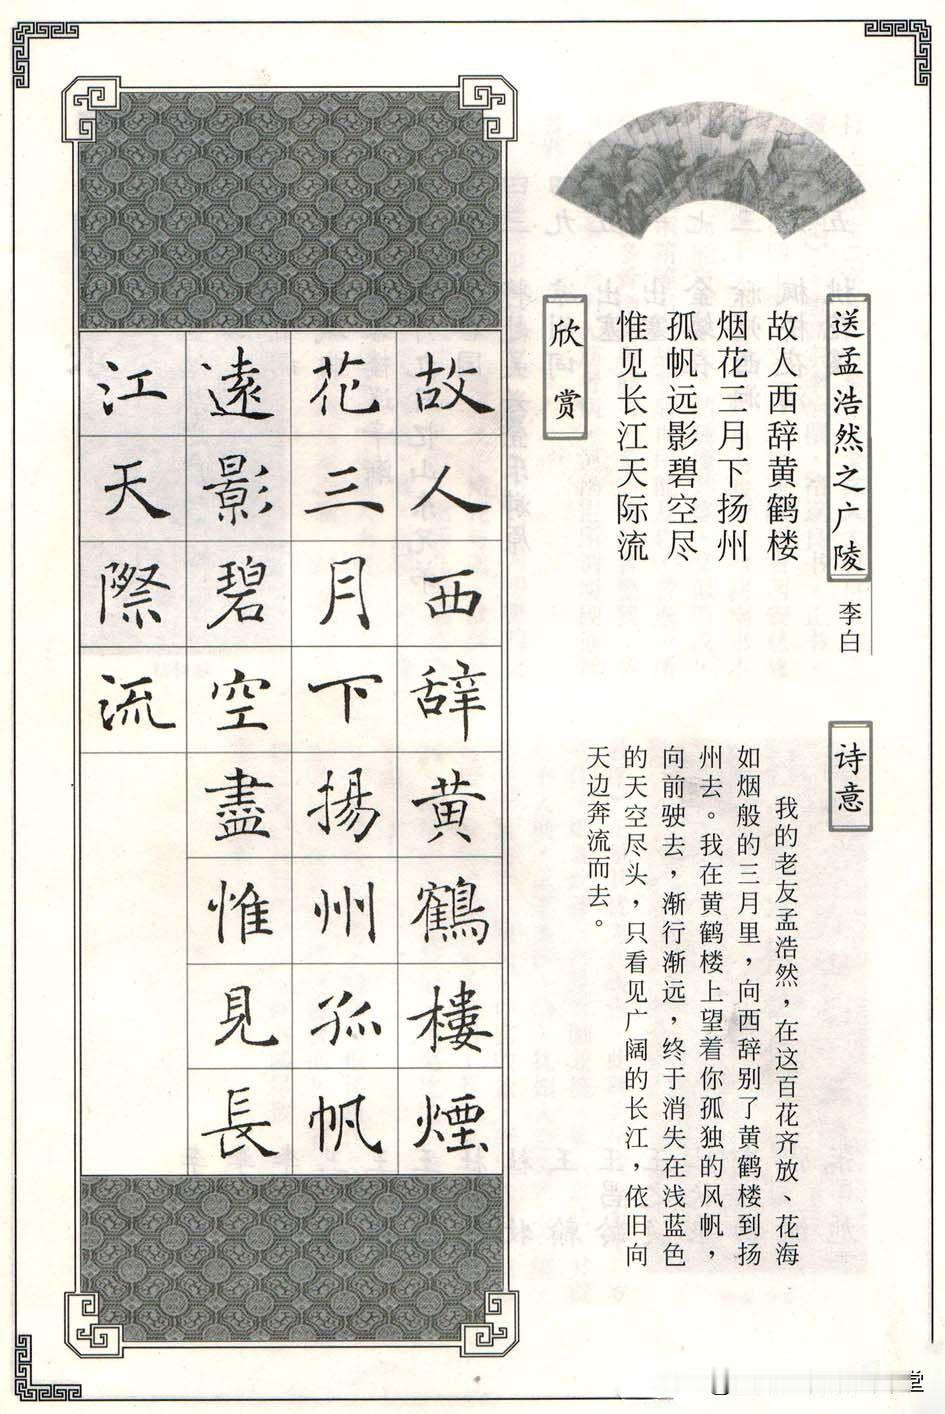 送孟浩然之广陵
李白
故人西辞黄鹤楼
烟花三月下扬州
孤帆远影碧空尽
惟见长江天际流
诗意
我的老友孟浩然，在这百花齐放、花海
如烟般的三月里，向西辞别了黄鹤楼到扬
州去。我在黄鹤楼上望着你孤独的风帆，
向前驶去，渐行渐远，终于消失在浅蓝色
的天空尽头，只看见广阔的长江，依旧向
天边奔流而去。
欣赏
故人西辞黄鶴樓煙
花三月下揚州孤帆
遠影碧空盡惟見長
江天際流
堂